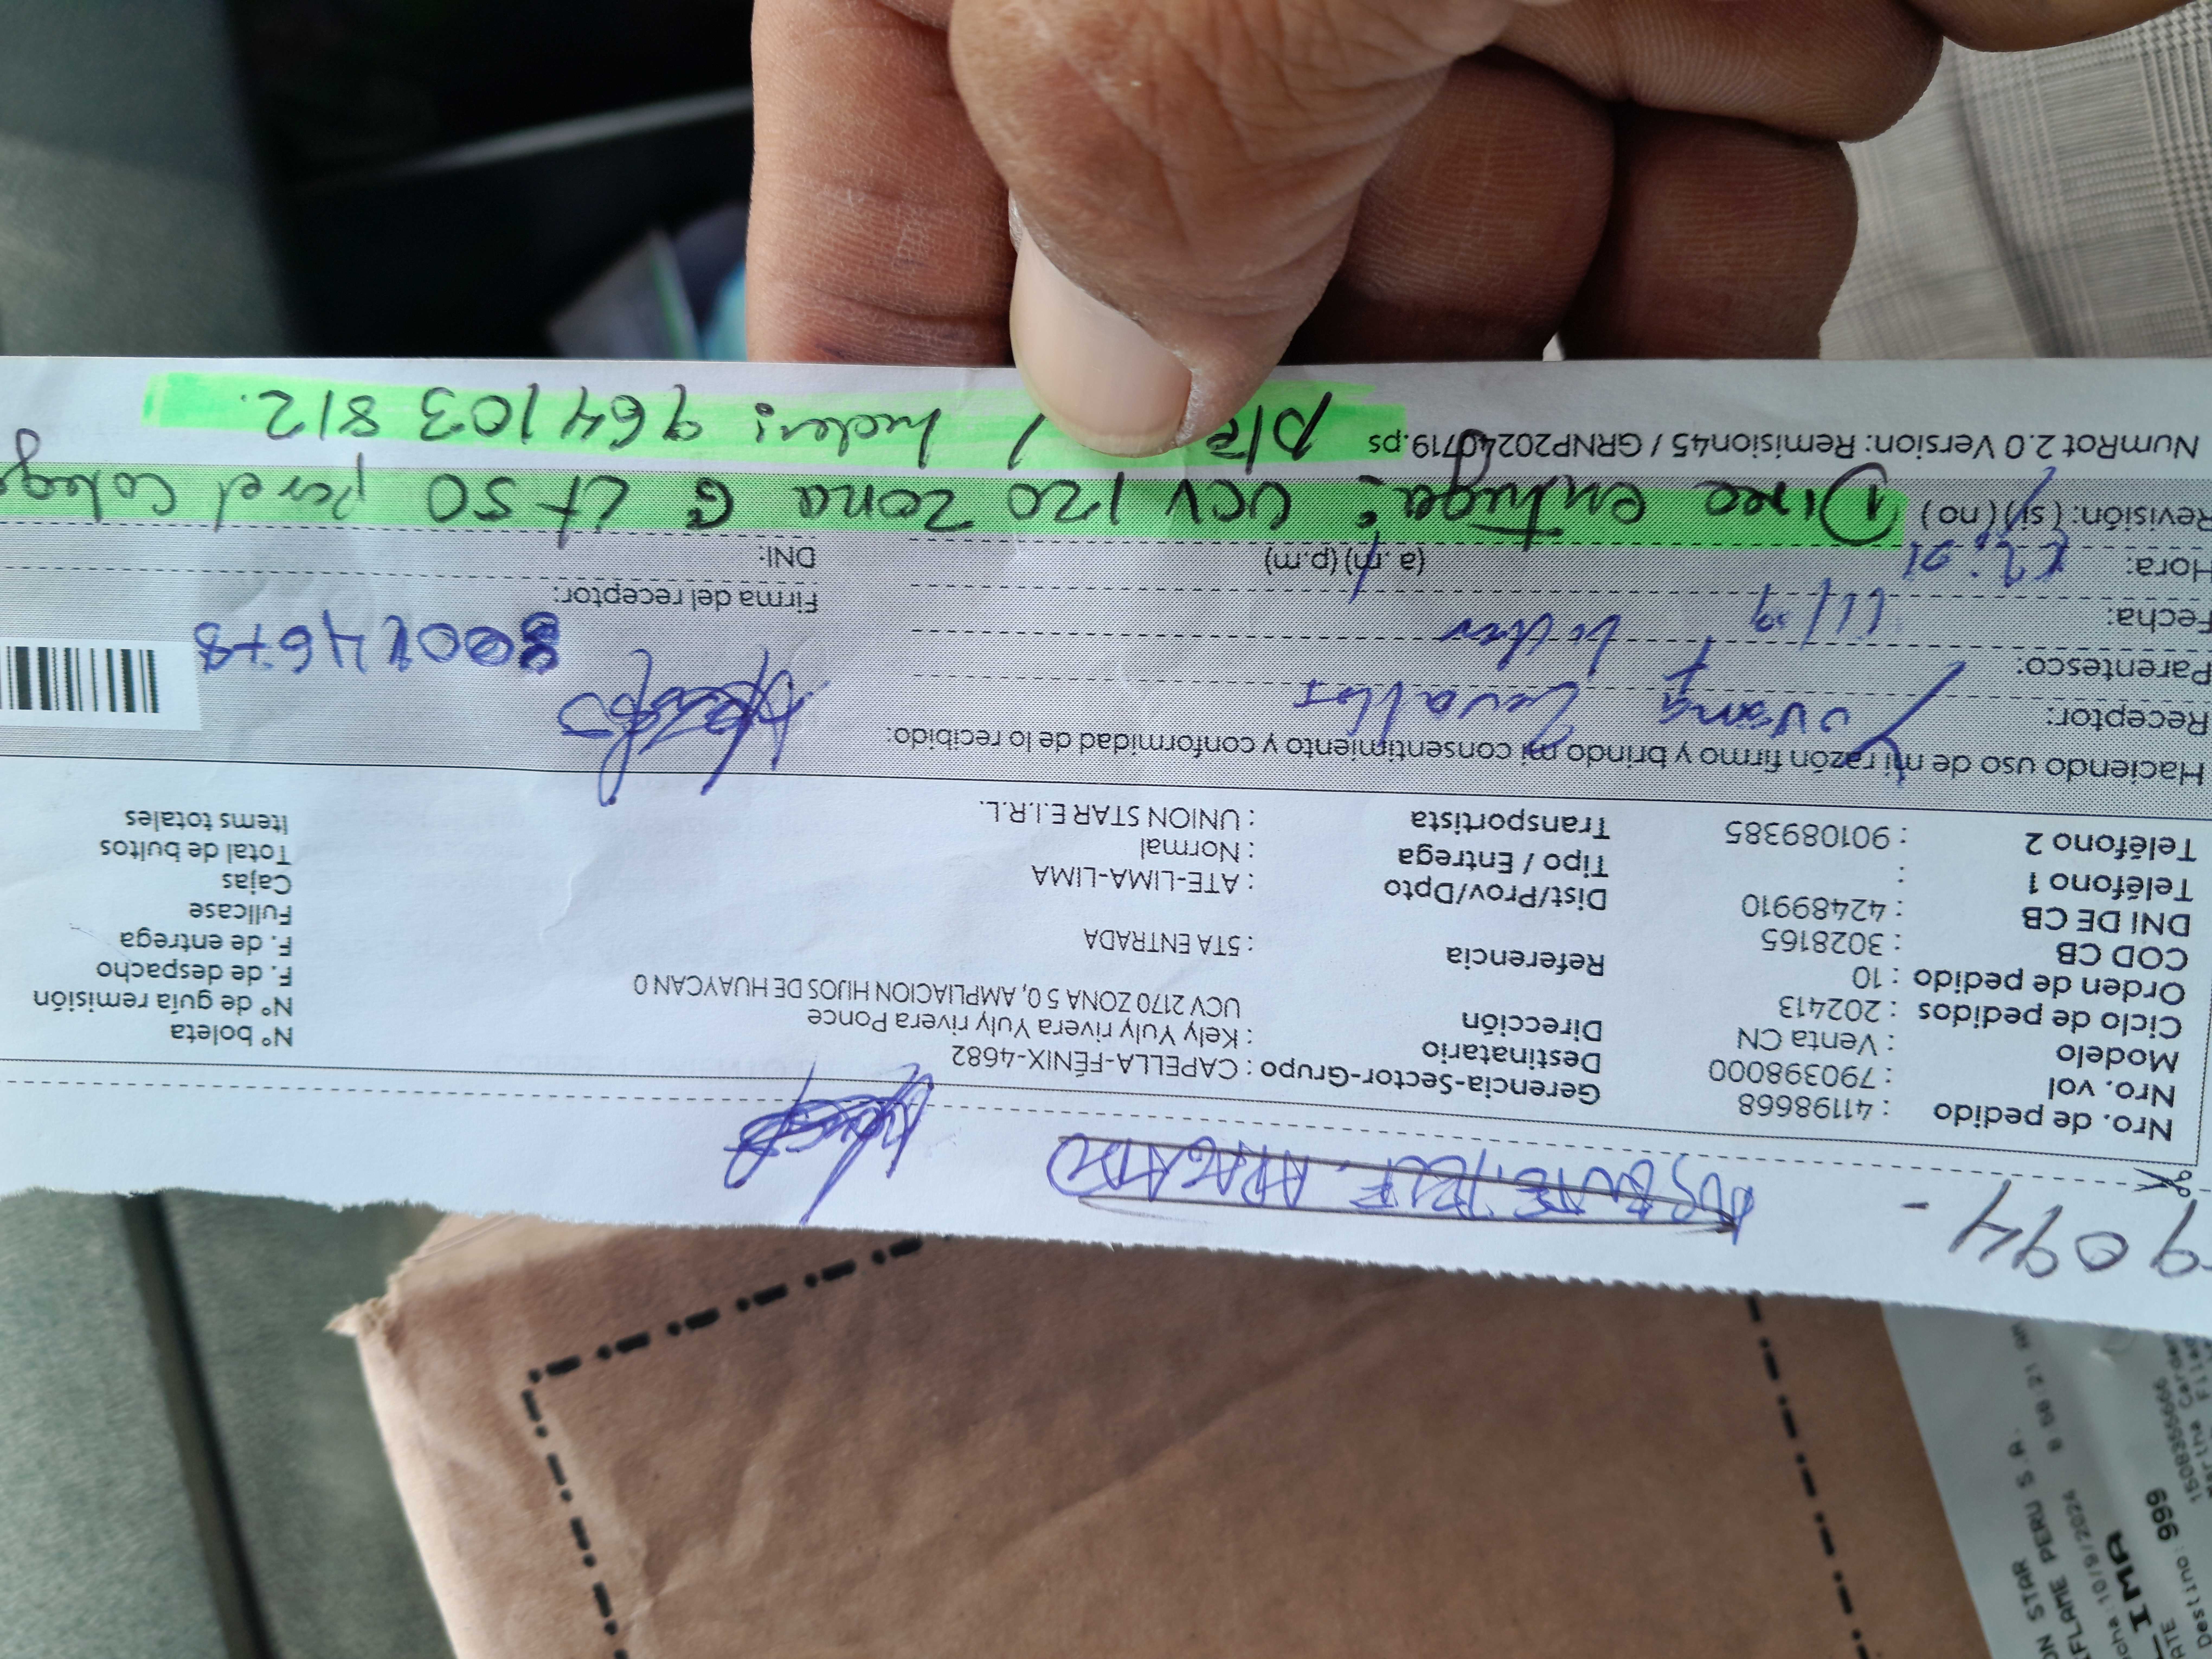 9094 -
AUSENTE, TELF. APAGADO
Nro. de pedido : 41198668
Nro. vol : 790398000
Modelo : Venta CN
Ciclo de pedidos : 202413
Orden de pedido : 10
COD CB : 3028165
DNI DE CB : 42489910
Teléfono 1 :
Teléfono 2 : 901089385
Gerencia-Sector-Grupo : CAPELLA-FÉNIX-4682
Destinatario : Kely Yuly rivera Yuly rivera Ponce
Dirección UCV 2170 ZONA 5 0, AMPLIACION HIJOS DE HUAYCAN 0
Referencia : 5TA ENTRADA
Dist/Prov/Dpto : ATE-LIMA-LIMA
Tipo / Entrega : Normal
Transportista : UNION STAR E.I.R.L.
N° boleta
N° de guía remisión
F. de despacho
F. de entrega
Fullcase
Cajas
Total de bultos
Items totales
Haciendo uso de mi razón firmo y brindo mi consentimiento y conformidad de lo recibido:
Receptor: Zevallos
Parentesco:
Fecha: 11/9
Hora: (a.m) (p.m)
Revisión: (si) (no)
Firma del receptor:
DNI:
① Direc entrega: UCV 120 zona G LT 50 por el Coleg
NumRot 2.0 Version: Remision45 / GRNP20240719.ps
964103812.
ON STAR
FLAME PERU S.A.
10/9/2024
LIMA
ATE
Destino: 999